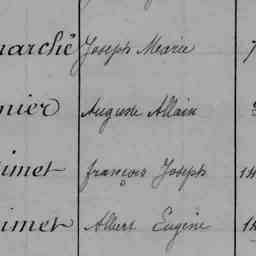 marché Joseph Marie 7
nier Auguste Allain
imet françois Joseph 14
imet Albert Eugène 14